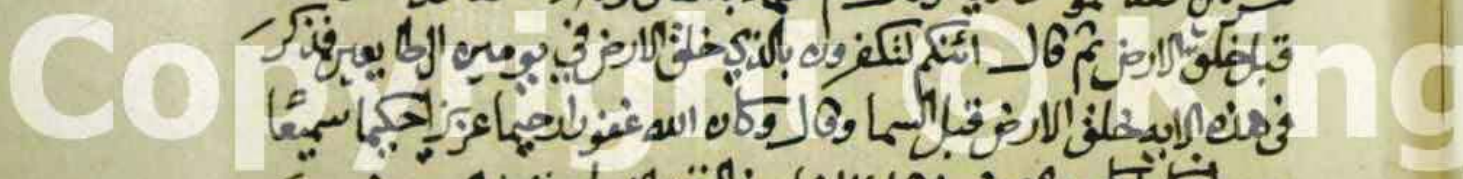 قبل خلق الارض ثم قال ائنكم لتكفرون بالذي خلق الارض في يومين الى طايعين فذكر
في هذه الايه خلق الارض قبل السما وقال وكان الله غفورا رحيما عزيزا حكيما سميعا
Copyright © King